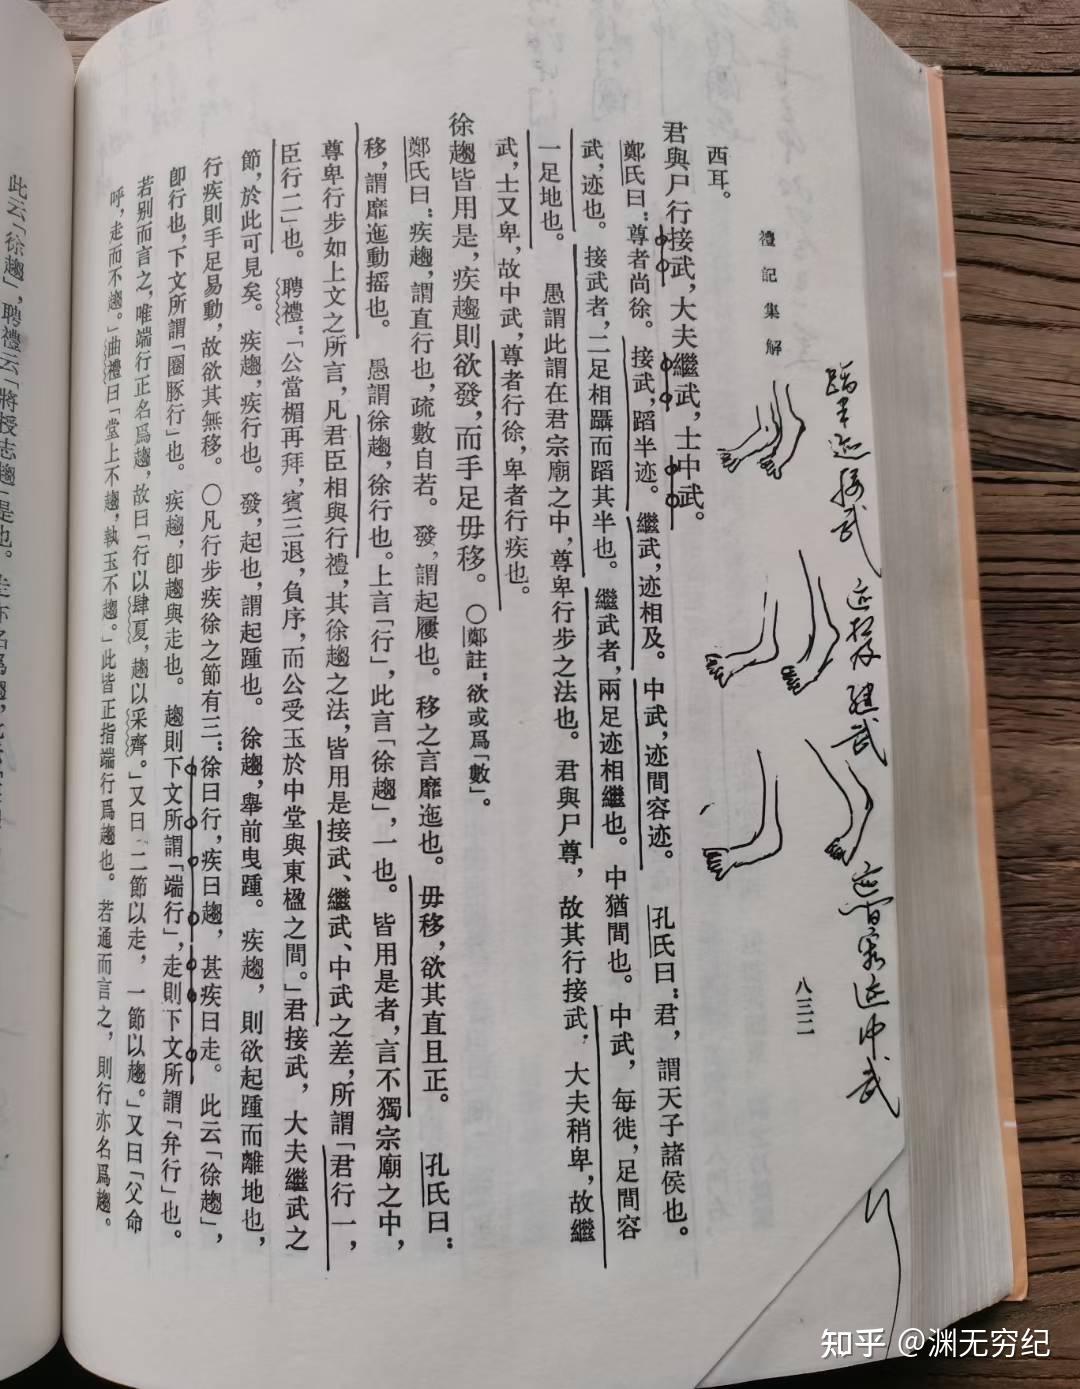 蹈半迹接武
繼武
中武
禮記集解
八三二
西耳。
君與尸行接武，大夫繼武，士中武。
鄭氏曰：尊者尚徐。接武，蹈半迹。繼武，迹相及。中武，迹間容迹。 孔氏曰：君，謂天子諸侯也。
武，迹也。接武者，二足相躡而蹈其半也。繼武者，兩足迹相繼也。中猶間也。中武，每徙，足間容
一足地也。 愚謂此謂在君宗廟之中，尊卑行步之法也。君與尸尊，故其行接武，大夫稍卑，故繼
武，士又卑，故中武，尊者行徐，卑者行疾也。
徐趨皆用是，疾趨則欲發，而手足毋移。〇鄭註：欲或爲「數」。
鄭氏曰：疾趨，謂直行也，疏數自若。發，謂起屨也。移之言靡迤也。毋移，欲其直且正。 孔氏曰：
移，謂靡迤動摇也。 愚謂徐趨，徐行也。上言「行」，此言「徐趨」，一也。皆用是者，言不獨宗廟之中，
尊卑行步如上文之所言，凡君臣相與行禮，其徐趨之法，皆用是接武、繼武、中武之差，所謂「君行一，
臣行二」也。聘禮：「公當楣再拜，賓三退，負序，而公受玉於中堂與東楹之間。」君接武，大夫繼武之
節，於此可見矣。疾趨，疾行也。發，起也，謂起踵也。徐趨，舉前曳踵。疾趨，則欲起踵而離地也，
行疾則手足易動，故欲其無移。〇凡行步疾徐之節有三：徐曰行，疾曰趨，甚疾曰走。此云「徐趨」，
卽行也，下文所謂「圈豚行」也。疾趨，卽趨與走也。趨則下文所謂「端行」，走則下文所謂「弁行」也。
若别而言之，唯端行正名爲趨，故曰「行以肆夏，趨以采齊。」又曰「二節以走，一節以趨。」又曰「父命
呼，走而不趨。」曲禮曰「堂上不趨，執玉不趨。」此皆正指端行爲趨也。若通而言之，則行亦名爲趨。
此云「徐趨」，聘禮云「將授志趨」是也。走亦名爲趨，
知乎 @渊无穷纪